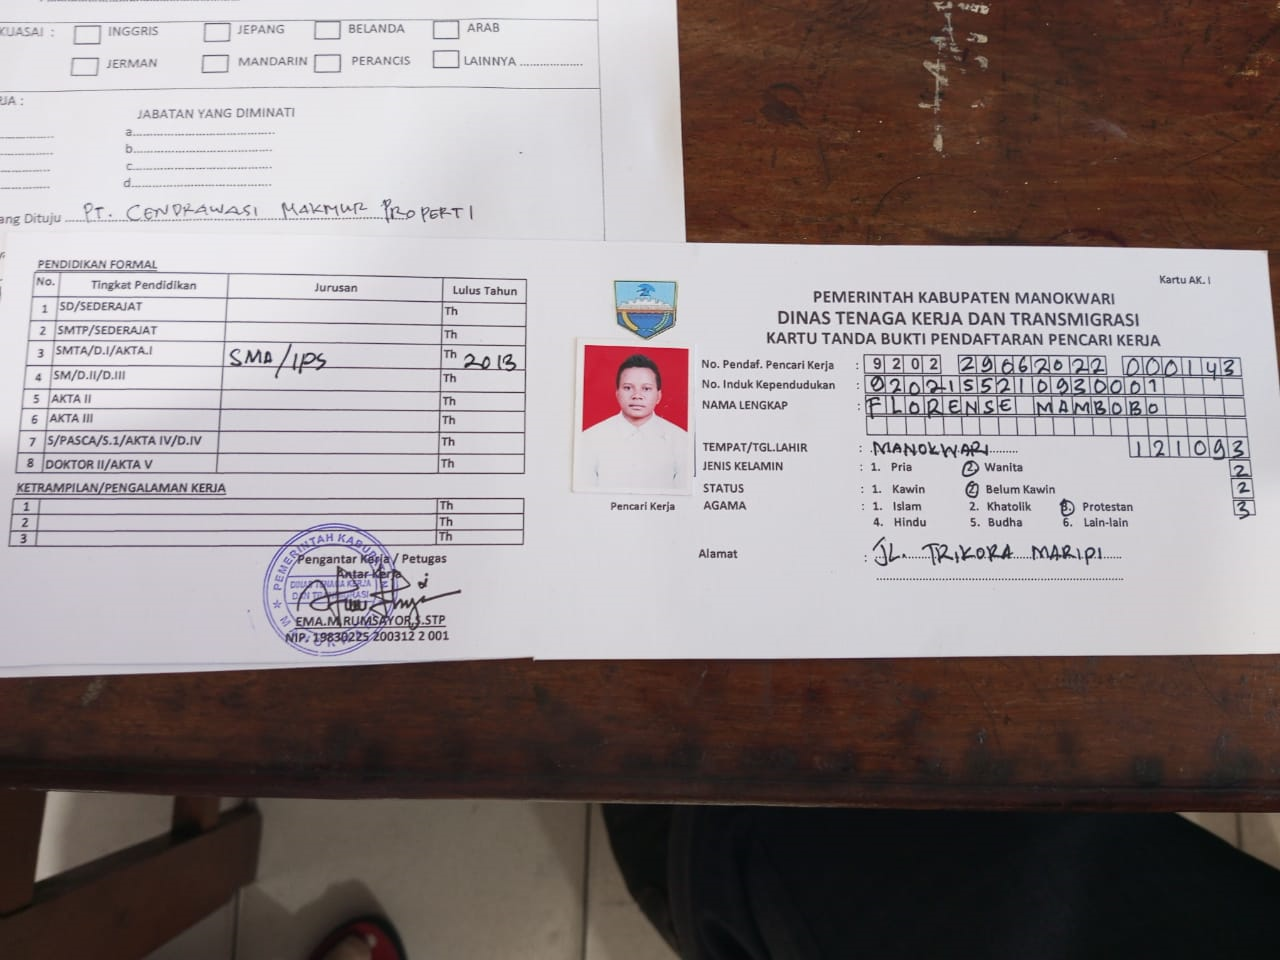 KUASAI : INGGRIS JEPANG BELANDA ARAB
JERMAN MANDARIN PERANCIS LAINNYA ....................
JABATAN YANG DIMINATI
a.............................................
b.............................................
c.............................................
d.............................................
ang Dituju ..... PT. CENDRAWASI MAKMUR PROPERTI
PENDIDIKAN FORMAL
No. Tingkat Pendidikan Jurusan Lulus Tahun
1 SD/SEDERAJAT Th
2 SMTP/SEDERAJAT Th
3 SMTA/D.I/AKTA.I SMA/IPS Th 2013
4 SM/D.II/D.III Th
5 AKTA II Th
6 AKTA III Th
7 S/PASCA/S.1/AKTA IV/D.IV Th
8 DOKTOR II/AKTA V Th
KETRAMPILAN/PENGALAMAN KERJA
1 Th
2 Th
3 Th
Pengantar Kerja / Petugas
Antar Kerja
PEMERINTAH KABUPATEN
DINAS TENAGA KERJA
DAN TRANSMIGRASI
EMA.M.RUMSAYOR,S.STP
NIP. 19830225 200312 2 001
Kartu AK. I
PEMERINTAH KABUPATEN MANOKWARI
DINAS TENAGA KERJA DAN TRANSMIGRASI
KARTU TANDA BUKTI PENDAFTARAN PENCARI KERJA
No. Pendaf. Pencari Kerja : 9202 29062022 000143
No. Induk Kependudukan : 9202155210930001
NAMA LENGKAP : FLORENSE MAMBOBO
TEMPAT/TGL.LAHIR : MANOKWARI 121093
JENIS KELAMIN : 1. Pria 2. Wanita 2
STATUS : 1. Kawin 2. Belum Kawin 2
AGAMA : 1. Islam 2. Khatolik 3. Protestan 3
4. Hindu 5. Budha 6. Lain-lain
Alamat : JL. TRIKORA MARIPI
Pencari Kerja